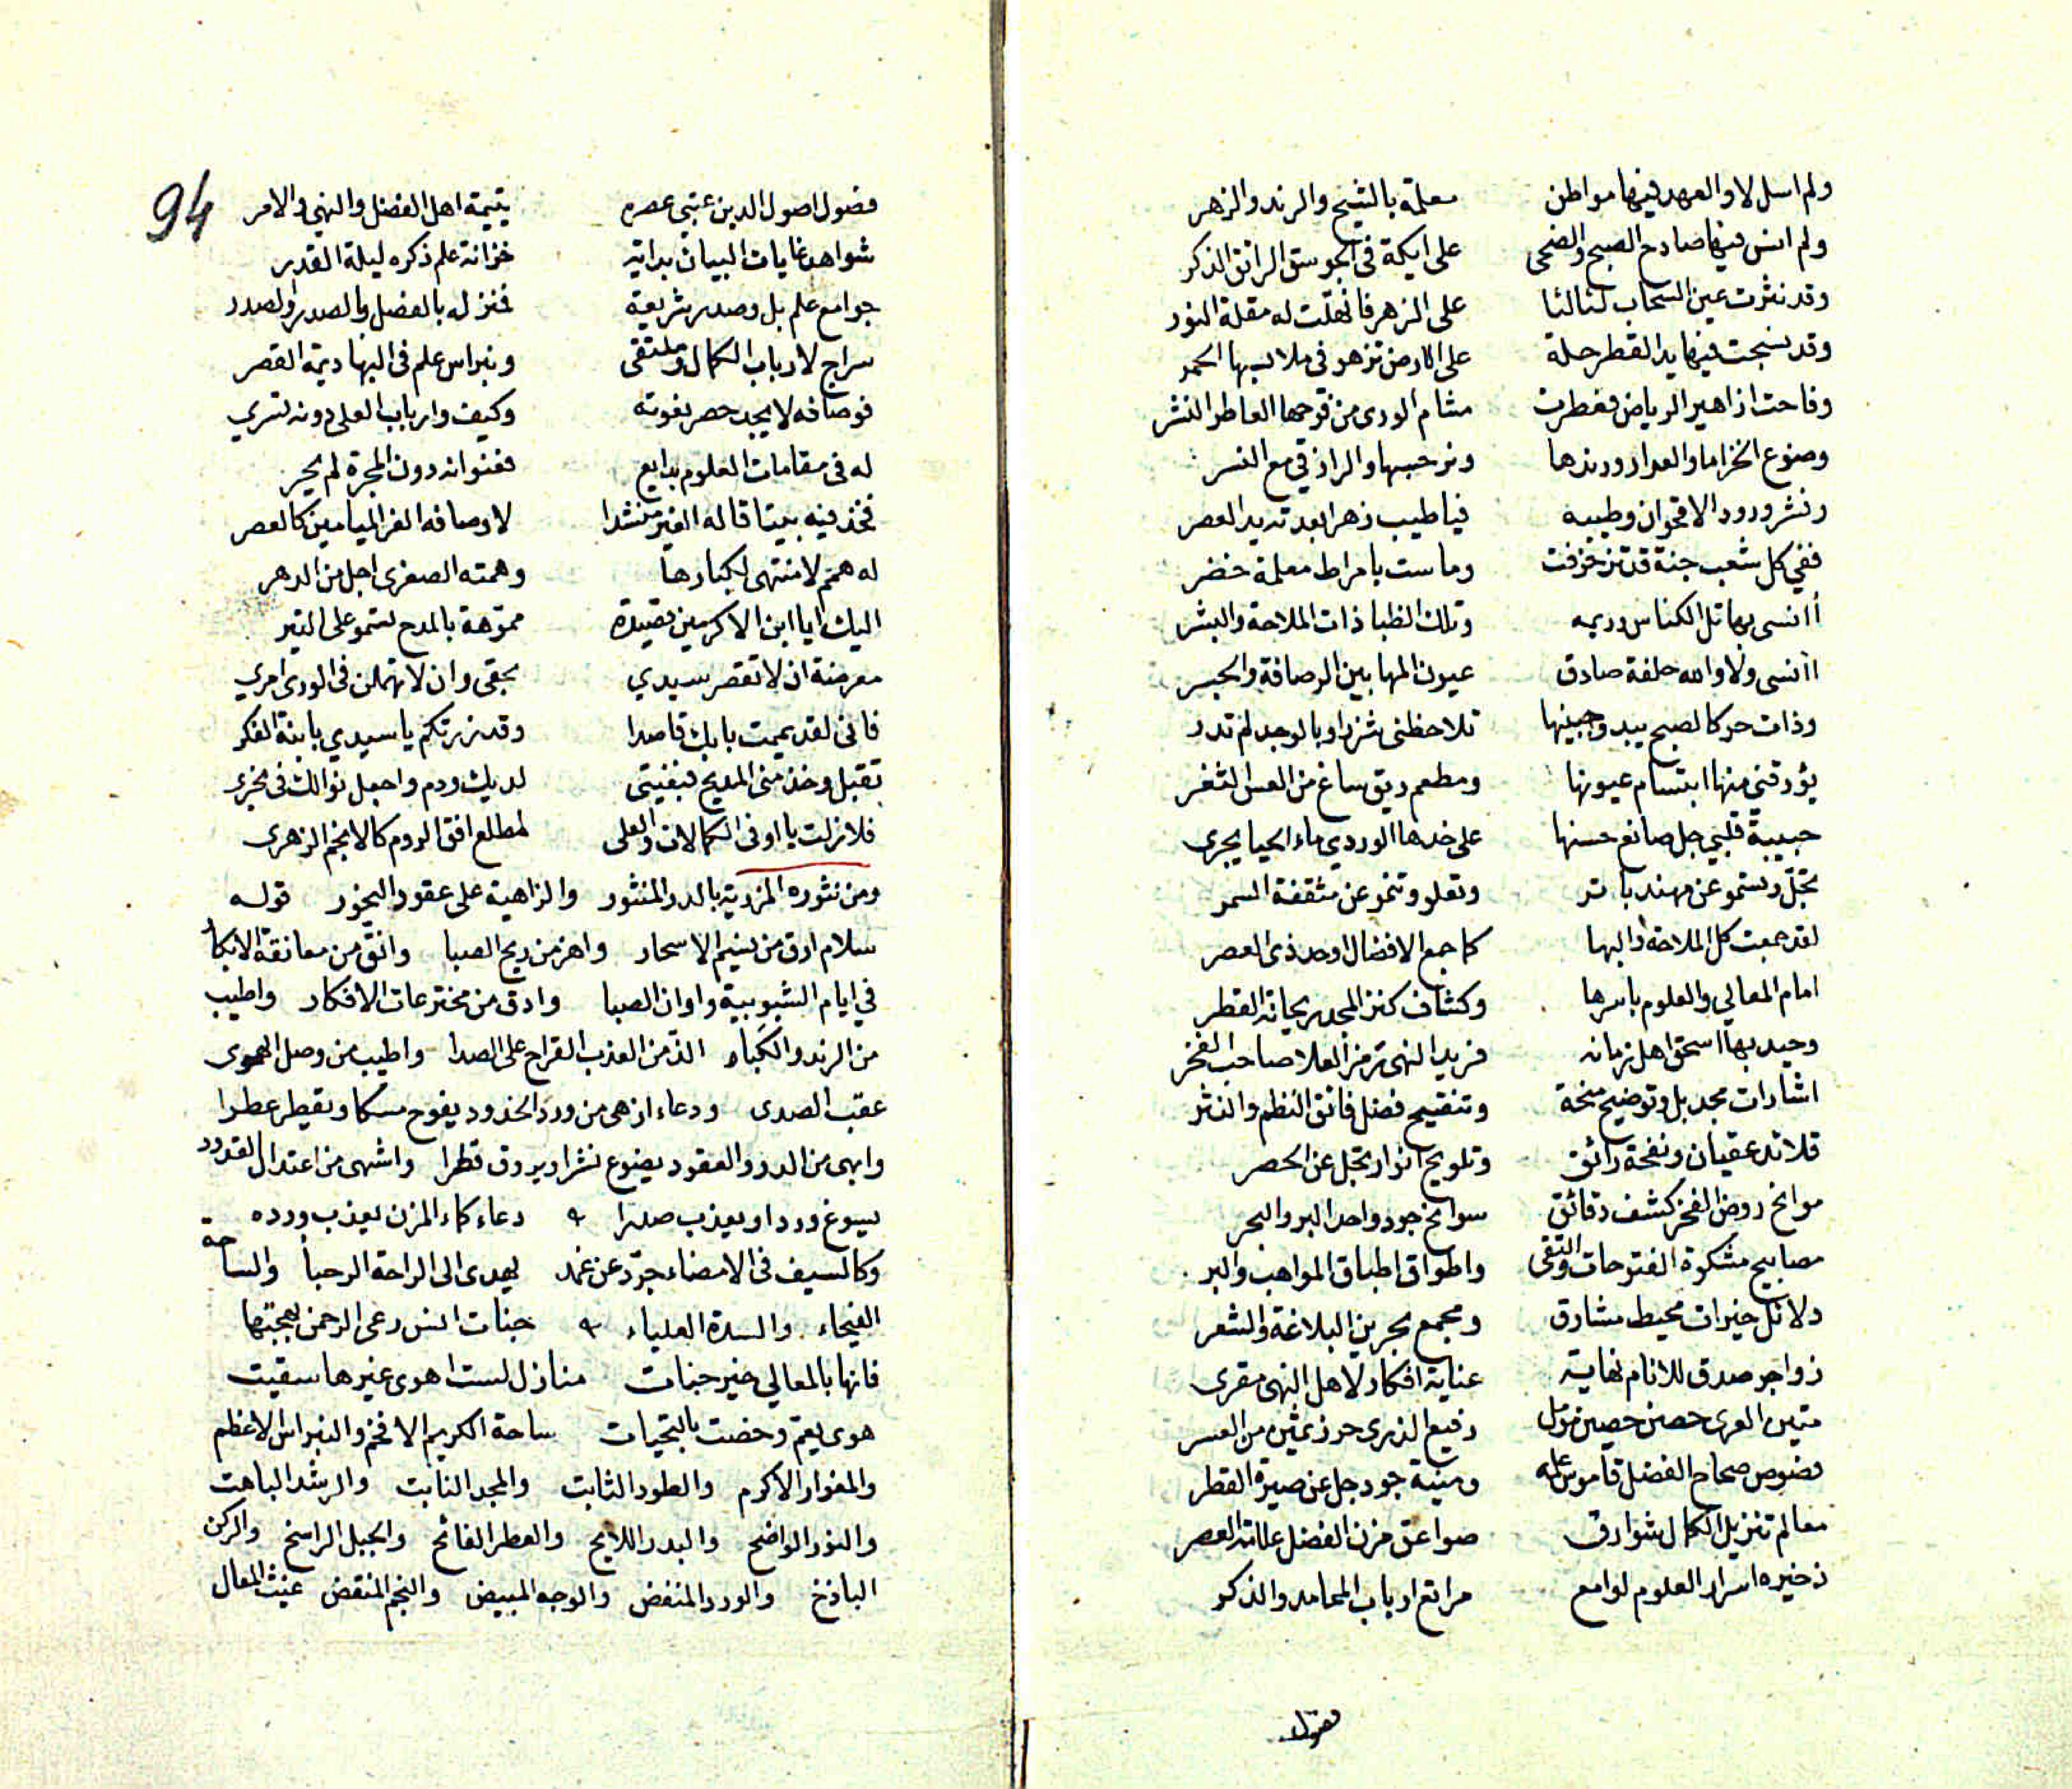 ولم اسل لا والعهد فيها مواطن معلمة بالشيح والرند والزهر
ولم انس فيها صادح الصبح والضحى على ايكة في الجوسق الرائق الذكر
وقد نثرت عين السحاب لئالئا على الزهر فانهلت له مقلة النور
وقد نسجت فيها يد القطر حلة على الارض تزهو في ملابسها الحمر
وفاحت ازاهير الرياض فعطرت مشام الورى من فوحها العاطر النشر
وضوع الخزاما والعرار ورندها ونرجسها والرازقي مع النسر
ونشر ورود الاقحوان وطيبه فيا طيب زهر ابعد تديد العصر
ففي كل شعب جنة قد تزخرفت وماست بامراط معلمة خضر
أانسى بها تل الكناس وريمه وتلك الظبا ذات الملاحة والبشر
أانسى ولا والله حلفة صادق عيون المها بين الرصافة والجسر
وذات حر كالصبح يبدو جبينها تلاحظني شزرا وبالوجد لم تدر
يؤرقني منها ابتسام عيونها ومطعم ريق ساغ من العس الثغر
حبيبة قلبي جل صانع حسنها على خدها الوردي ماء الحيا يجرى
تجل وتسمو عن مهند باتر وتعلو وتنمو عن مثقفة السمر
لقد جمعت كل الملاحة والبها كما جمع الافضال اوحد ذى العصر
امام المعالي والعلوم باسرها وكشاف كنز المجد ريحانة القطر
وحيد بها اسحق اهل زمانه فريد النهى ترمز العلا صاحب الفخر
اشارات مجد بل وتوضيح منحة وتنقيح فضل فائق النظم والنثر
قلائد عقيان ونفحة رائق وتلويح انوار تجل عن الحصر
موانح روض الفخر كشف دقائق سوانح جود واحد البر والبحر
مصابيح مشكوة الفتوحات والتقى واطواق اطباق المواهب والبر
دلائل خيرات محيط مشارق ومجمع بحرين البلاغة والشعر
زواجر صدق للانام نهاية عناية افكار لاهل النهى مقرى
متين العرى حصن حصين مؤل رفيع الذرى حرز ثمين من العسر
فصوص صحاح الفضل قاموس علمه ومنية جود جل عن صيرة القطر
معالم تنزيل الكمال شوارق صواعق مزن الفضل علامة العصر
ذخيره اسرار العلوم لوامع مراتع ارباب المحامد والذكر
فصول
94
فصول اصول الدين عتبي عصره يتيمة اهل الفضل والنهي والامر
شواهد غايات البيان بداية خزانة علم ذكره ليلة القدر
جوامع علم بل وصدر شريعة فنزله بالفضل بالصدر والصدر
سراج لارباب الكمال وملتقى ونبراس علم في البها ديمة القصر
فوصافه لا يجد حصر نعوته وكيف وارباب العلى دونه تسري
له في مقامات العلوم بدايع فعنوانه دون المجرة لم يجر
فخذ فيه بيتا قاله الغير منشدا لاوصافه الغر الميامين كالعصر
له همم لا منتهى لكبارها وهمته الصغرى اجل من الدهر
اليك ايا ابن الاكرمين قصيدة مموهة بالمدح تسمو على التبر
معرضة ان لا تقصر سيدي بحقي وان لا تهملن في الورى امري
فاني لقد يممت بابك قاصدا وقد زرتكم يا سيدي بابنة الفكر
تقبل وخذ مني المديح فبغيتى لديك ودم واجعل نوالك في نجرى
فلا زلت يا اوفى الكمالات والعلى لمطلع افق الروم كالانجم الزهرى
ومن نثوره المزدية بالدر المنثور والزاهية على عقود النحور قوله
سلام ارق من نسيم الاسحار واهز من ريح الصبا وانق من معانقة الابكار
في ايام الشبوبية واوان الصبا وادق من مخترعات الافكار واطيب
من الرند والكباء الذ من العذب القراح على الصدا واطيب من وصل الهوى
عقب الصدى ودعاء ازهى من ورد الخدود يفوح مسكا ويقطر عطرا
وابهى من الدرر والعقود يضوع نشرا ويروق قطرا واشهى من اعتدال القدود
يسوغ وردا ويعذب صدرا دعاء كماء المزن يعذب ورده
وكالسيف في الامضاء جرد عن غمد يهدى الى الراحة الرحبا والساحة
الفيحاء والسدة العلياء جنات انس رعى الرحمن بهجتها
فانها بالمعالي خير جنات منازل لست اهوى غيرها سقيت
هوى يعم وخصت بالتحيات ساحة الكريم الافخم والنبراس الاعظم
والمغوار الاكرم والطود الثابت والمجد النابت والرشد الباهت
والنور الواضح والبدر اللايح والعطر الفائح والجبل الراسخ والركن
الباذخ والورد المنفض والوجه المبيض والنجم المنقض غيث المعال